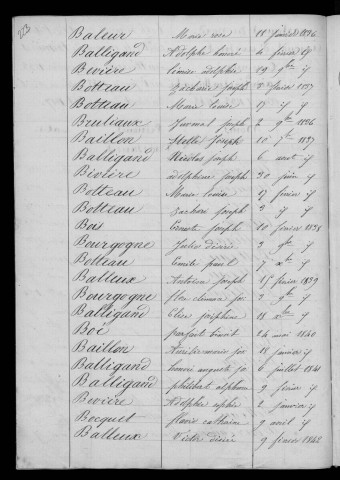 223
Baleur Marie rose 11 janvier 1836
Balligand Adolphe honoré 4 février if
Bevière louise adolphine 19 9bre if
Botteau Zacharie Joseph 2 février 1837
Botteau Marie louise 17 if if
Bruliaux Juvenal Joseph 2 9bre 1836
Baillon Joseph 10 7bre 1837
Balligand Nicolas Joseph 6 aout if
Bivière adolphine Joseph 30 juin if
Botteau Marie louise 17 février if
Botteau Zacharie Joseph 2 if if
Bois Ernest Joseph 10 février 1838
Bourgogne Jules désiré 3 9bre if
Botteau Emile paul 7 xbre if
Balleux Antoine Joseph 15 février 1839
Bourgogne 2 9bre if
Balligand Elisa Joséphine 18 xbre if
Boé parfait benoit 24 mai 1840
Baillon marie jos 18 janvier if
Balligand honoré auguste jos 6 juillet 1841
Balligand philibert alphonse 9 février if
Bevière Adolphe 2 janvier if
Bocquet flavie catherine 9 avril if
Balleux Victor désiré 9 février 1842